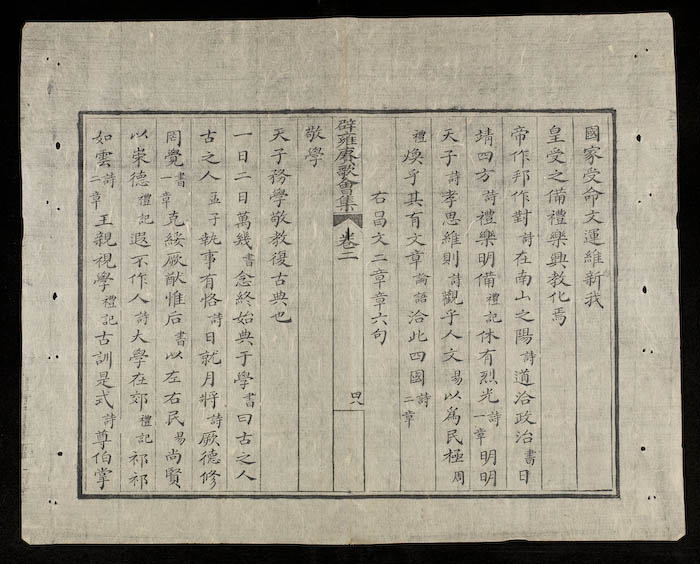 國家受命文運維新我
皇受之備禮樂興教化焉
帝作邦作對詩在南山之陽詩道洽政治書日
靖四方詩禮樂明備禮記休有烈光詩一章明明
天子詩孝思維則詩觀乎人文易以爲民極周
禮煥乎其有文章論語洽此四國詩二章
右昌文二章章六句
辟雍賡歌會集 卷二 四八
敬學
天子務學敬教復古典也
一日二日萬幾書念終始典于學書曰古之人
古之人孟子執事有恪詩日就月將詩厥德修
罔覺書一章克綏厥猷惟后書以左右民易尚賢
以崇德禮記遐不作人詩大學在郊禮記祁祁
如雲詩二章王親視學禮記古訓是式詩尊伯掌